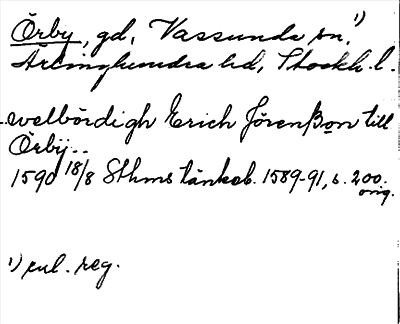 Örby, gd, Vassunda sn,¹⁾
Ärlinghundra hd, Stockh. l.
..welbördigh Erich Jörenßon till
Örbÿ..
1590 18/8 Sthms tänkeb. 1589-91, s. 200.
orig.
¹⁾ enl. reg.